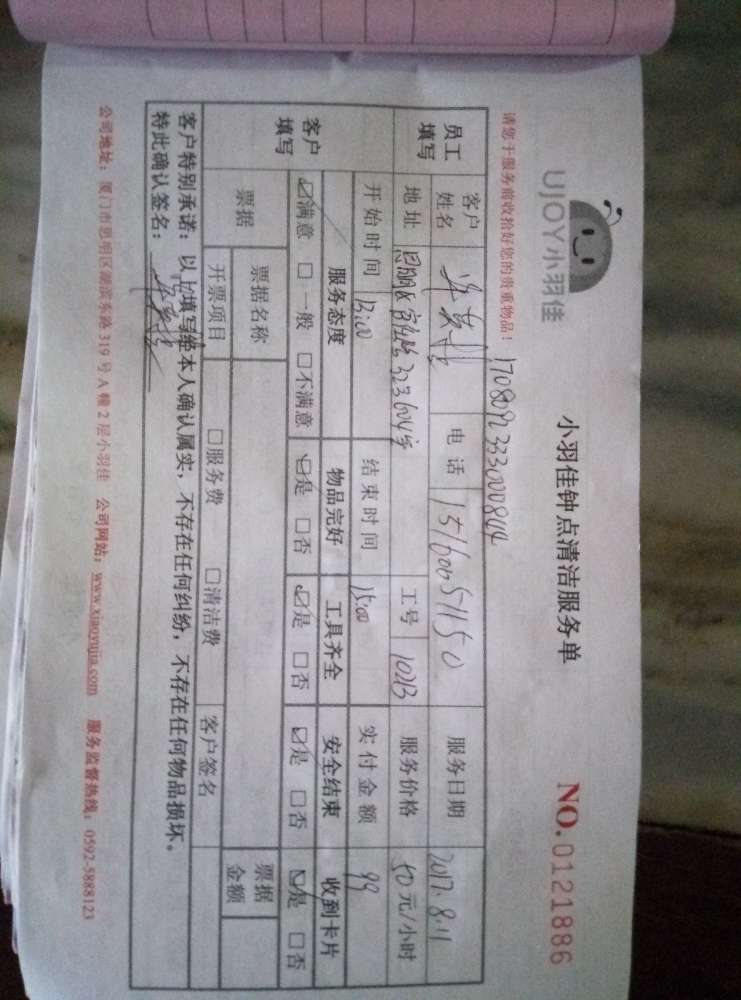 UJOY小羽佳
小羽佳钟点清洁服务单
NO.0121886
请您于服务前收拾好您的贵重物品！
员工填写 客户姓名 电话 15160051150 服务日期 2017.8.11
地址 323 604室 工号 10213 服务价格 50元/小时
开始时间 13:00 结束时间 15:00 实付金额 99
客户填写 服务态度 物品完好 工具齐全 安全结束 收到卡片
☑满意 □一般 □不满意 ☑是 □否 ☑是 □否 ☑是 □否 ☑是 □否
票据 票据名称 票据金额
开票项目 □服务费 □清洁费 客户签名
客户特别承诺：以上填写经本人确认属实，不存在任何纠纷，不存在任何物品损坏。
特此确认签名：
公司地址：厦门市思明区湖滨东路 319 号 A 幢 2 层小羽佳 公司网站：www.xiaoyujia.com 服务监督热线：0592-5888123